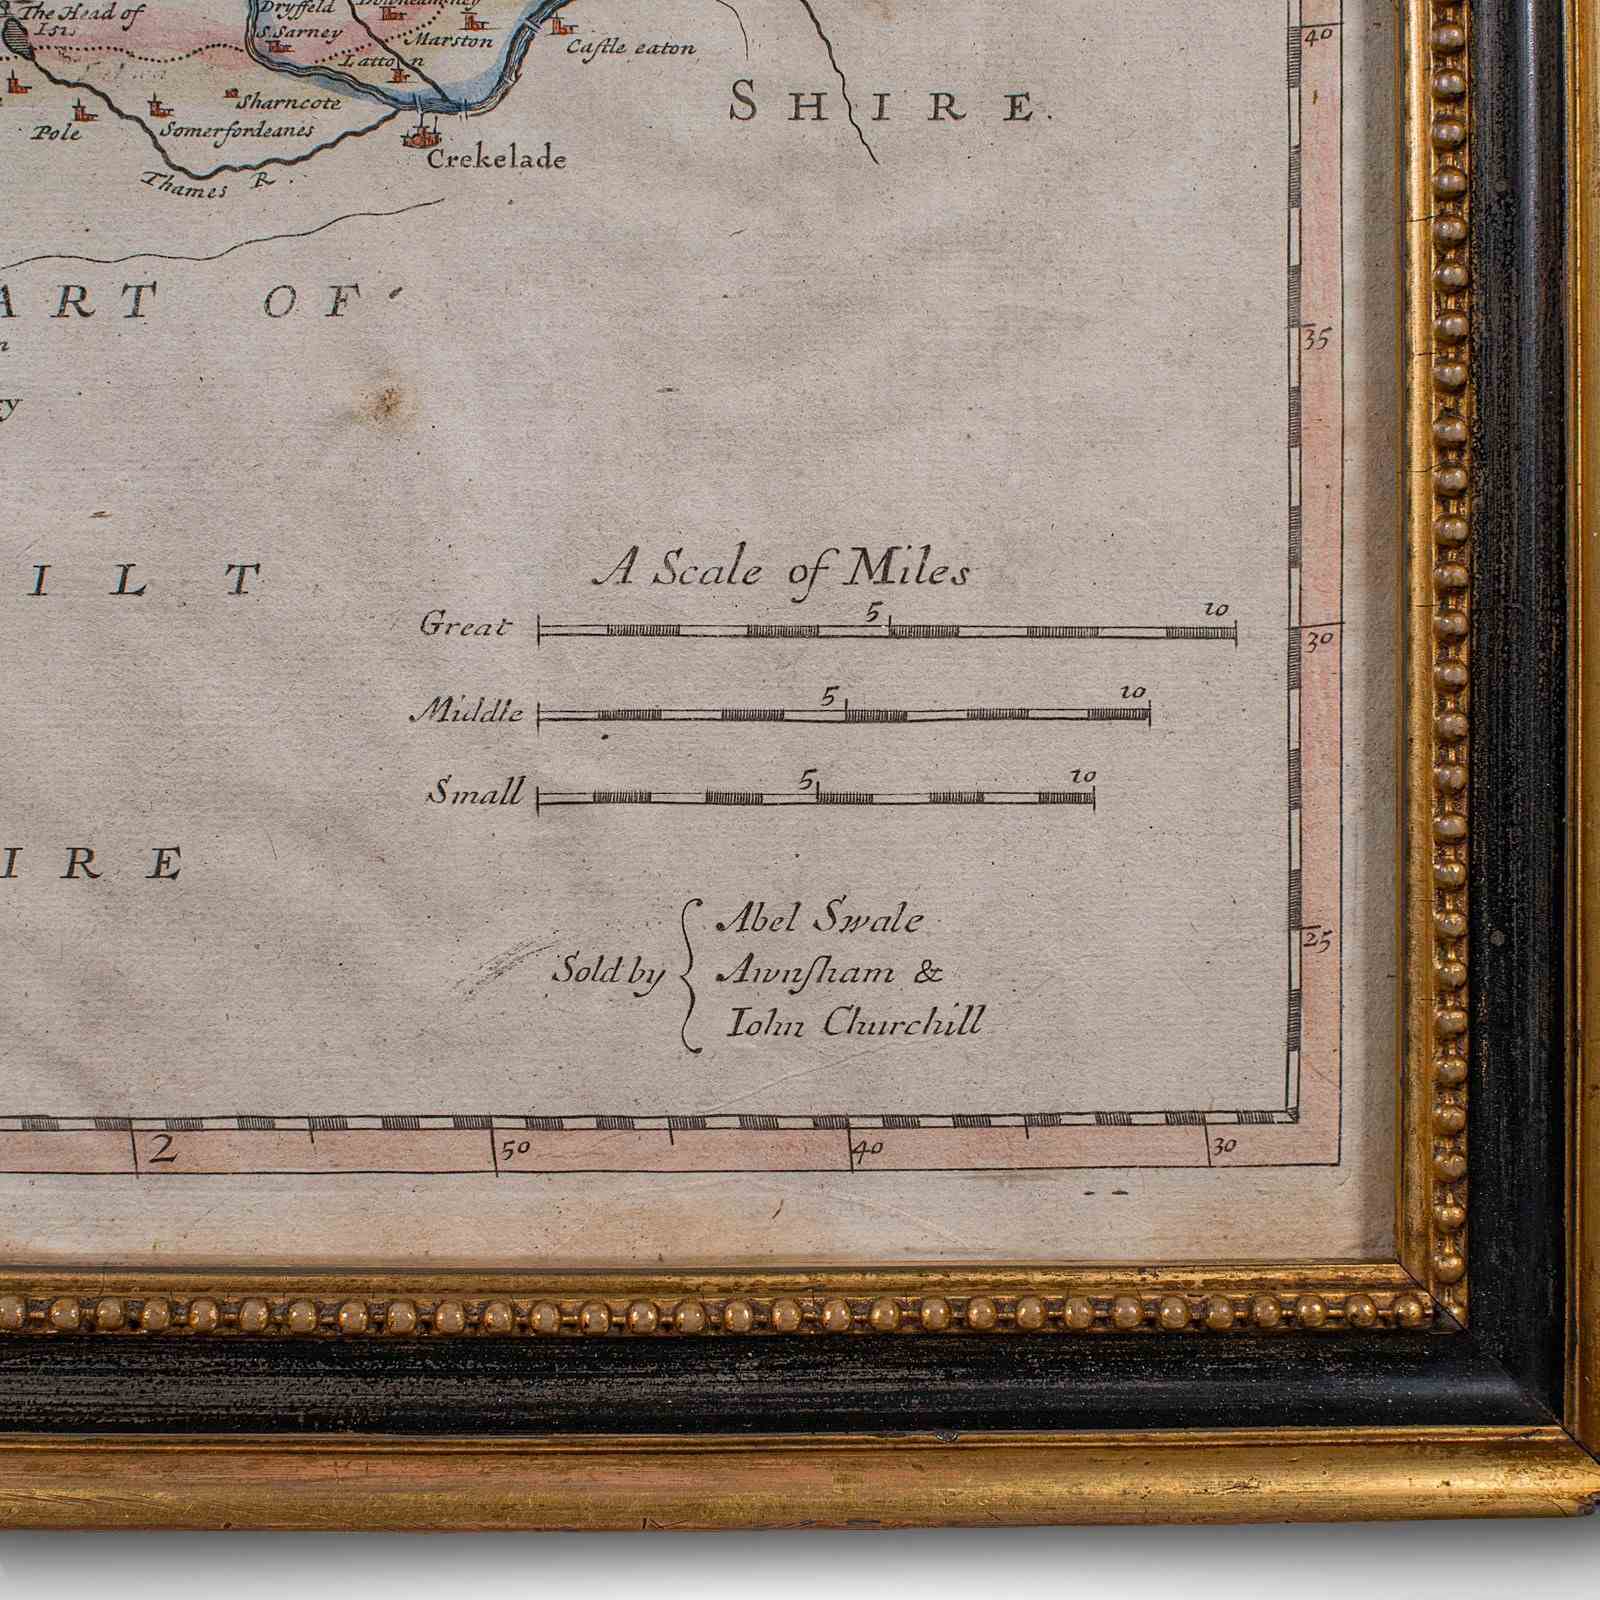 The Head of
Isis
Dryffeld
S. Sarney
Marston
Castle eaton
Latton
40
Sharncote
SHIRE.
Pole
Somerfordeanes
Crekelade
Thames R.
ART OF
35
A Scale of Miles
ILT
Great 5 10
30
Middle 5 10
Small 5 10
IRE
Abel Swale
25
Sold by
Awnſham &
Iohn Churchill
2 50 40 30